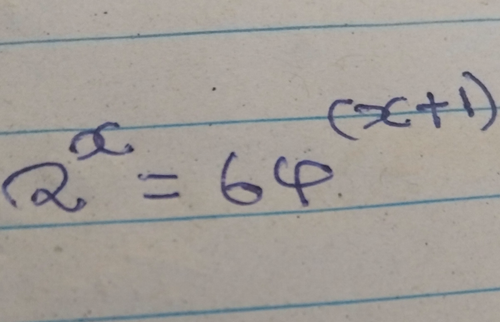 2^x = 64^(x+1)